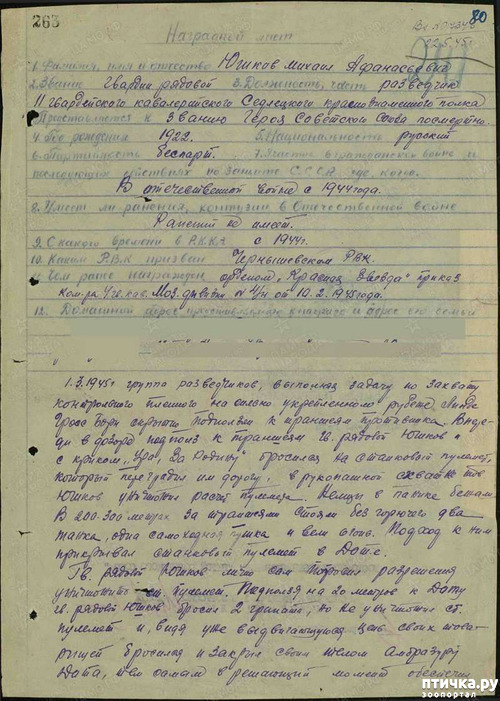 263
80
Вх
22.5.45г.
Наградной лист
1. Фамилия, имя и отчество Юшков Михаил Афанасьевич
2. Звание гвардии рядовой 3. Должность, часть разведчик
11 гвардейского кавалерийского Седлецкого краснознаменного полка
Представляется к званию Героя Советского Союза посмертно.
4. Год рождения 1922. 5. Национальность русский
6. Партийность беспарт. 7. Участие в гражданской войне и
последующих действиях по защите С.С.С.Р. где, когда.
В отечественной войне с 1944 года.
8. Имеет ли ранения, контузии в Отечественной войне
Ранений не имеет.
9. С какого времени в Р.К.К.А с 1944г.
10. Каким Р.В.К призван Чернышевским РВК.
11. Чем ранее награжден орденом „Красная звезда" приказ
ком-ра 4 гв. кав. Моз. дивизии № 4/н от 10.2.1945 года.
12. Домашний адрес представляемого к награде и адрес его семьи
1.3.1945г группа разведчиков, выполняя задачу по захвату
контрольного пленного на сильно укрепленном рубеже
Гросс Борн скрытно подползли к траншеям противника. Будучи
в дозоре подполз к траншеям гв. рядовой Юшков и
с криком „Ура, За Родину" бросился на станковый пулемет,
который переградил им дорогу, в рукопашной схватке тов
Юшков уничтожил расчет пулемета. Немцы в панике бежали
В 200-300 метрах за траншеями стояли без горючего два
танка, одна самоходная пушка и вели огонь. Подход к ним
прикрывал станковый пулемет в Доте.
Гв. рядовой Юшков лично сам попросил разрешения
уничтожить ст. пулемет. Подползя на 20 метров к Доту
гв. рядовой Юшков бросил 2 гранаты, но не уничтожив ст.
пулемет и, видя уже выдвигающуюся цепь своих това-
рищей бросился и закрыл своим телом амбразуру
Дота, тем самым в решающий момент обеспечил
птичка.ру
зоопортал